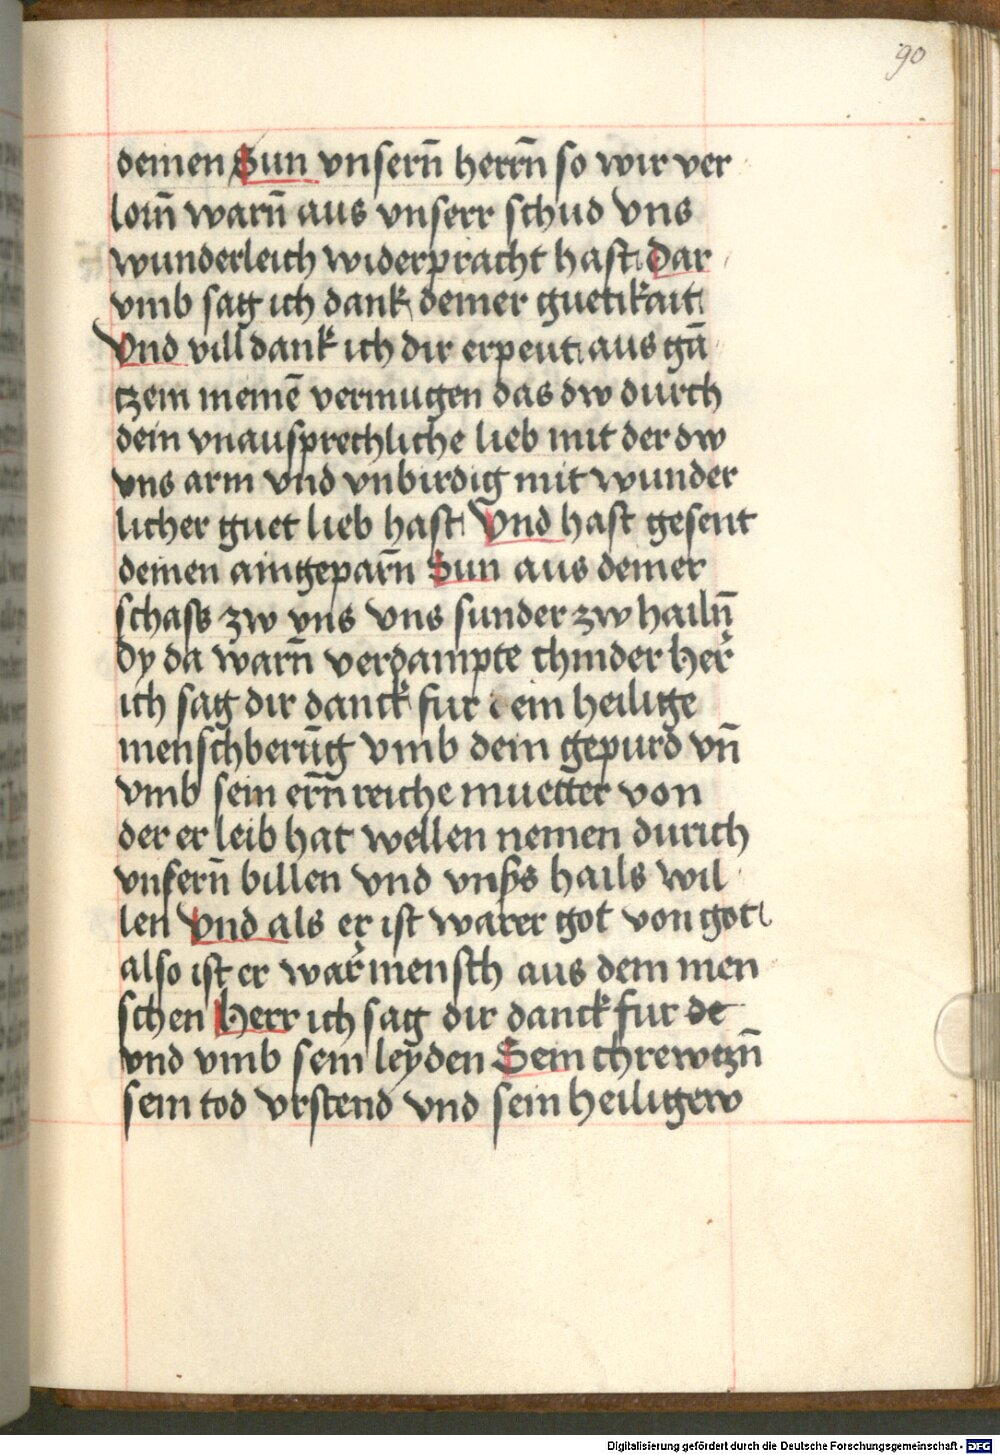 90
deinen Sun vnsern̄ herrn̄ so wir ver
lorn̄ warn̄ aus vnserr schud vns
wunderleich widerpracht hast Dar
vmb sag ich dank deiner guetikait
Vnd vill dank ich dir erpeut aus gā
tzem meinē vermugen das dw durch
dein vnausprechliche lieb mit der dw
vns arm vnd vnbirdig mit wunder
licher guet lieb hast Vnd hast gesent
deinen aingeparn̄ Sun aus deiner
schass zw vns vns sunder zw hailn̄
Dy da warn̄ verdampte chinder her
ich sag dir danck fur dein heilige
menschberūg vmb dein gepurd vn̄
vmb sein ern̄reiche muetter von
der er leib hat wellen nemen durich
vnsern̄ billen vnd vnsers hails wil
len Vnd als er ist warer got von got
also ist er war mensch aus dem men
schen Herr ich sag dir danck fur de
vnd vmb sein leyden Sein chrewtzn̄
sein tod vrstend vnd sein heiligew
Digitalisierung gefördert durch die Deutsche Forschungsgemeinschaft - DFG